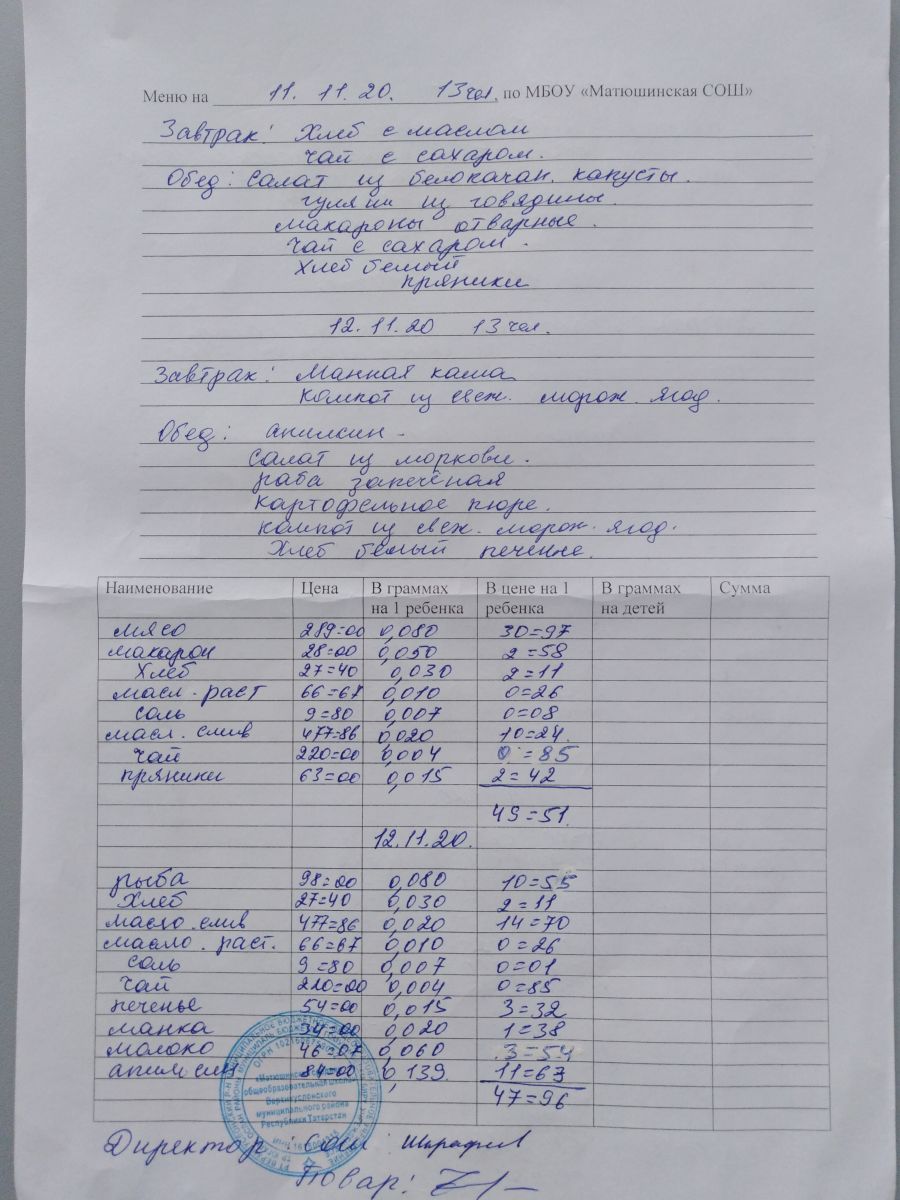 Меню на 11. 11. 20. 13 чел, по МБОУ «Матюшинская СОШ»
Завтрак: Хлеб с маслом
чай с сахаром.
Обед: Салат из белокачан. капусты.
гуляш из говядины.
макароны отварные.
чай с сахаром.
хлеб белый
пряники
12.11.20 13 чел.
Завтрак: Манная каша
компот из свеж. морож. ягод.
Обед: апилсин -
Салат из моркови.
рыба запечёная
картофельное пюре.
компот из свеж. морож. ягод.
Хлеб белый печенне.
Наименование Цена В граммах на 1 ребенка В цене на 1 ребенка В граммах на детей Сумма
мясо 289=00 0,080 30=97
макарон 28=00 0,050 2=58
Хлеб 27=40 0,030 2=11
масл. раст 66=67 0,010 0=26
соль 9=80 0,007 0=08
масл. слив 477=86 0,020 10=24
чай 220=00 0,004 0=85
пряники 63=00 0,015 2=42
49=51
12.11.20.
рыба 98=00 0,080 10=55
Хлеб 27=40 0,030 2=11
масло. слив 477=86 0,020 14=70
масло. раст. 66=67 0,010 0=26
соль 9=80 0,007 0=01
чай 220=00 0,004 0=85
печенье 54=00 0,015 3=32
манка 34=00 0,020 1=38
молоко 46=07 0,060 3=54
апилсин 84=00 0,139 11=63
47=96
«Матюшинская
общеобразовательная школа»
Верхнеуслонского
муниципального района
Республики Татарстан
Директор:
Повар: